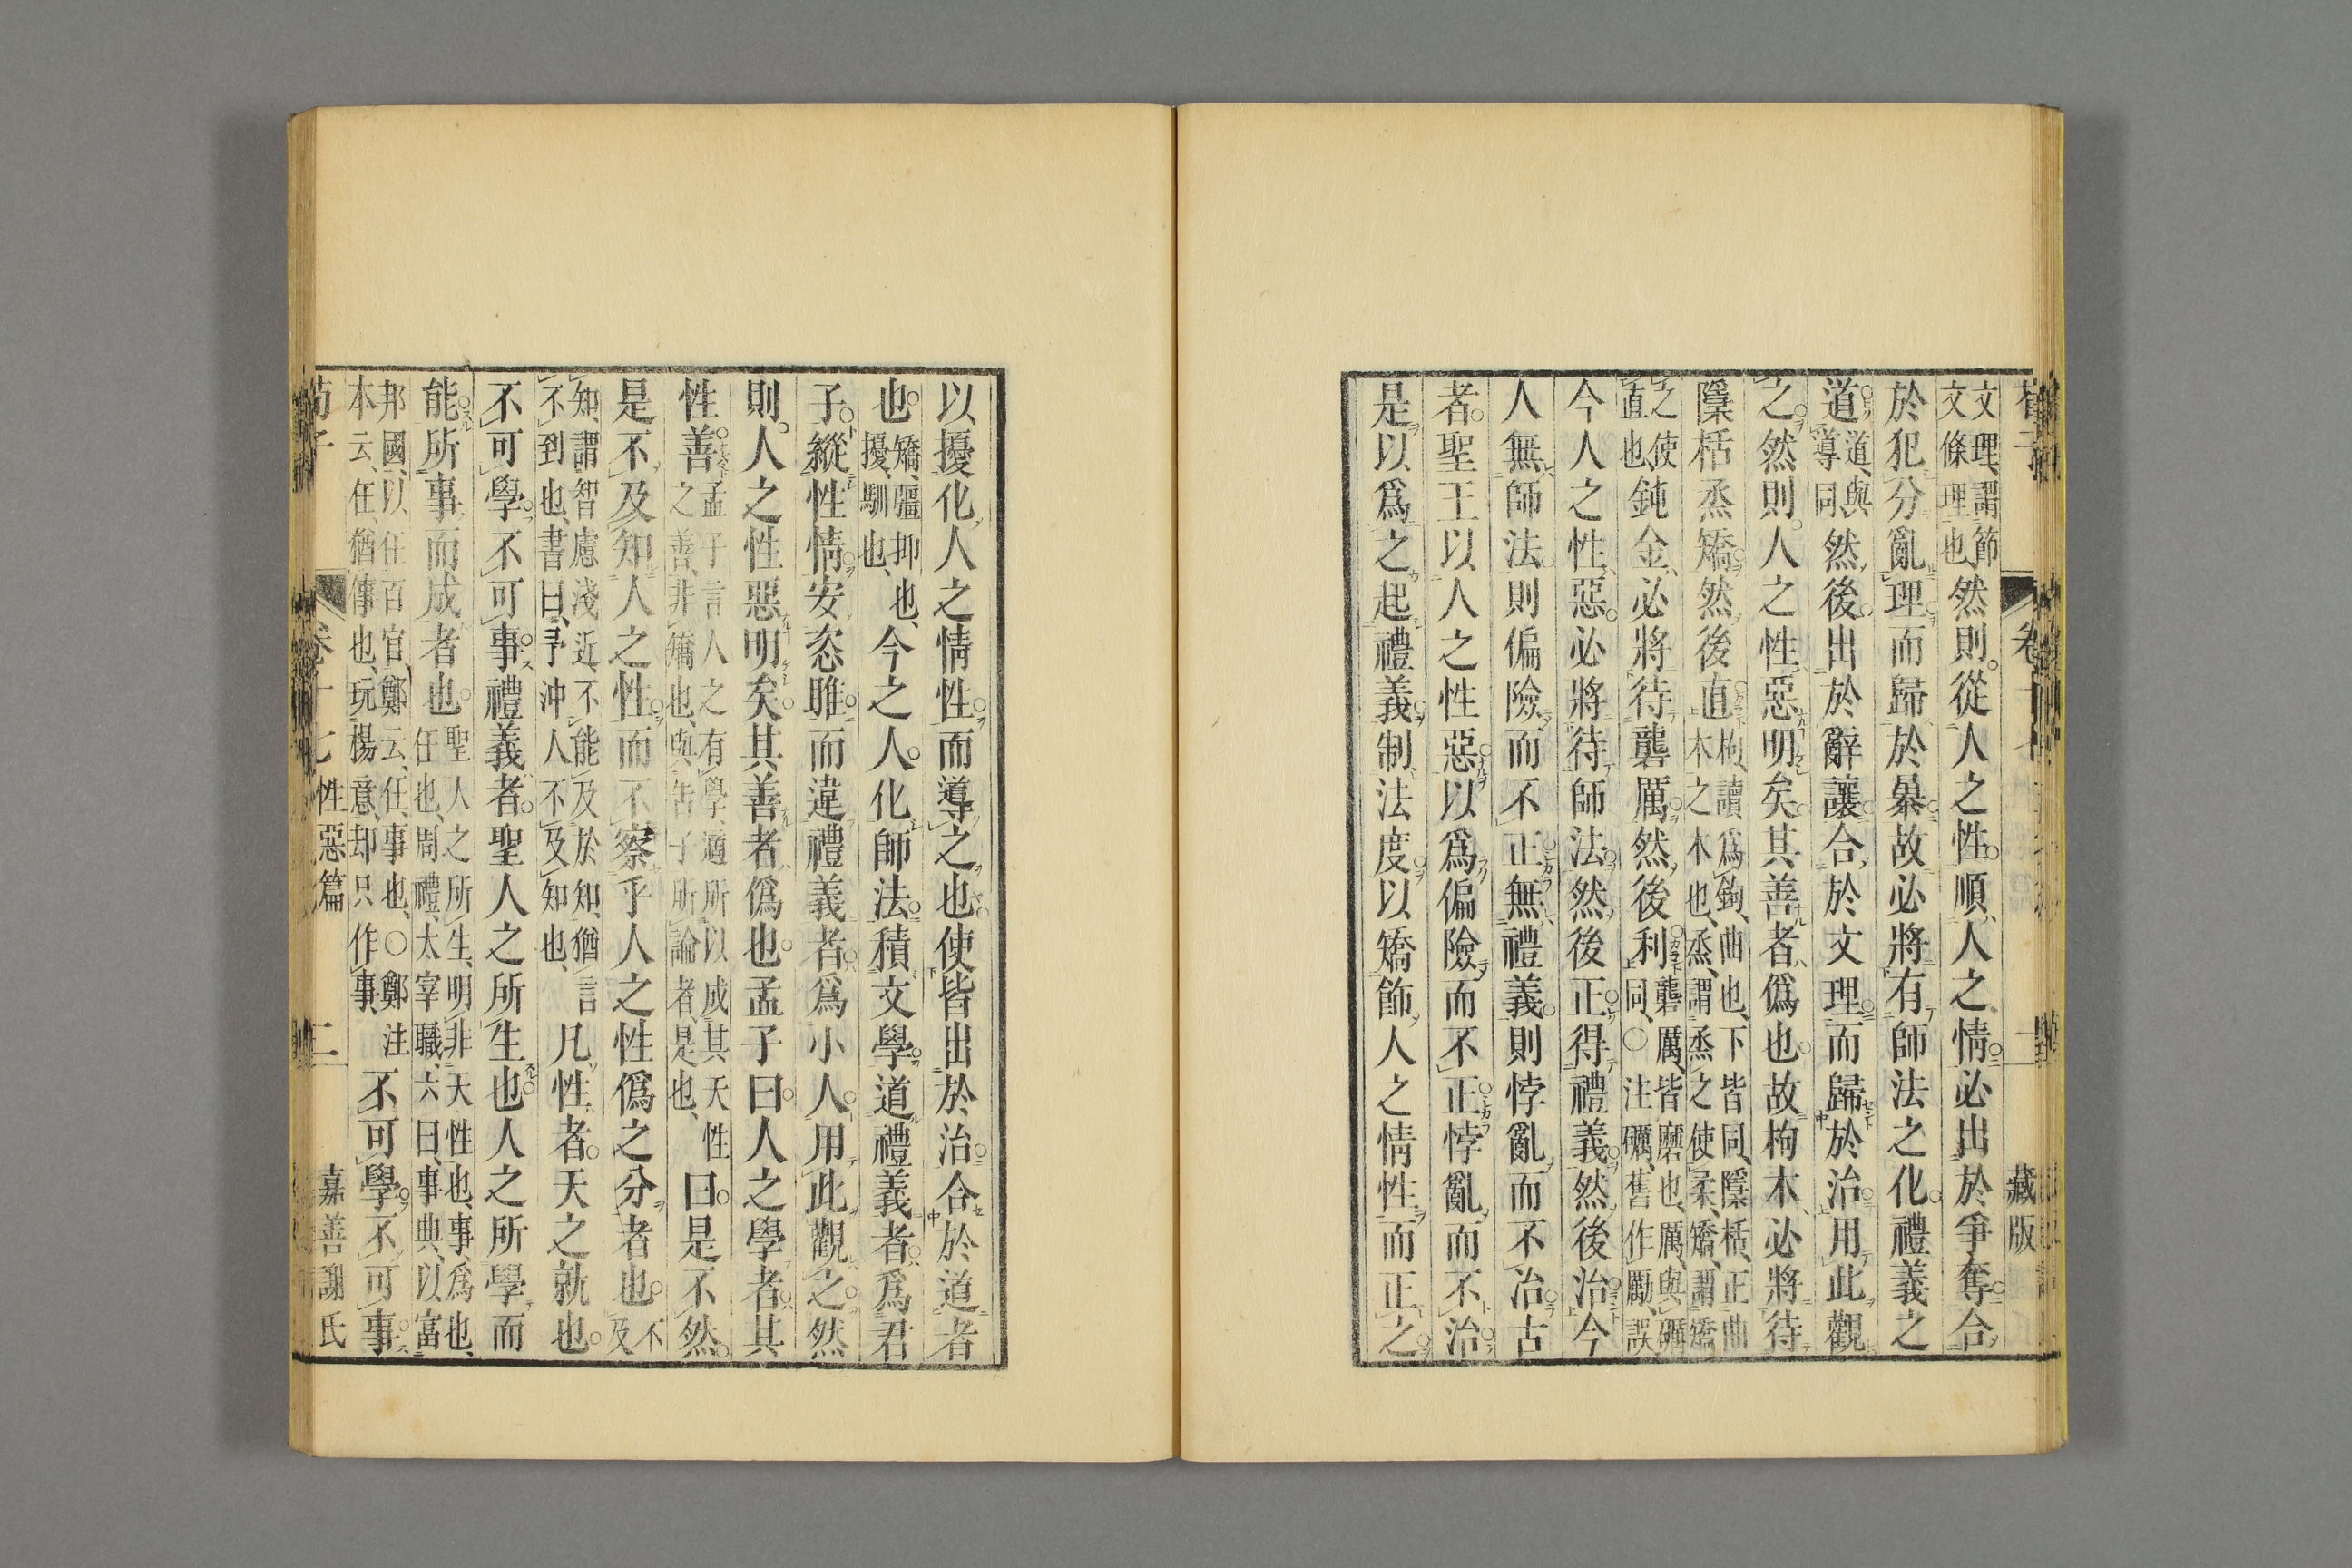 藏版
文理、謂節文條理也、然則從人之性、順人之情、必出於爭奪、合
於犯分亂理、而歸於暴、故必將有師法之化、禮義之
道、道、與導同、然後出於辭讓、合於文理、而歸於治、用此觀
之、然則人之性、惡明矣、其善者、僞也、故枸木、必將待
檃栝烝矯、然後直、枸、讀爲鉤、曲也、下皆同、檃栝、正曲木之木也、烝、謂烝之使柔、矯、謂矯
之使直也、鈍金、必將待礱厲、然後利、礱厲、皆磨也、厲、與礪同、○注礪、舊作勵、誤、
今人之性、惡、必將待師法、然後正、得禮義、然後治、今
人無師法、則偏險而不正、無禮義、則悖亂而不治、古
者聖王、以人之性惡、以爲偏險而不正、悖亂而不治、
是以爲之起禮義、制法度、以矯飾人之情性而正之、
以擾化人之情性而導之也、使皆出於治、合於道者
也、矯、彊抑也、擾、馴也、今之人、化師法、積文學、道禮義者、爲君
子、縱性情、安恣睢、而違禮義者、爲小人、用此觀之、然
則人之性惡明矣、其善者、僞也、孟子曰、人之學者、其
性善、孟子言人之有學、適所以成其天性之善、非矯也、與告子所論者、是也、曰、是不然、
是不及知人之性、而不察乎人之性僞之分者也、不及
知、謂智慮淺近、不能及於知、猶言不到也、書曰、予沖人不及知也、凡性者、天之就也、
不可學、不可事、禮義者、聖人之所生也、人之所學而
能、所事而成者也、聖人之所生、明非天性也、事、爲也、任也、周禮、太宰職、六曰、事典、以富
邦國、以任百官、鄭云、任、事也、○鄭注本云、任、猶傳也、玩楊意、却只作事、不可學、不可事、
荀子
卷十七
性惡篇
二
嘉善謝氏